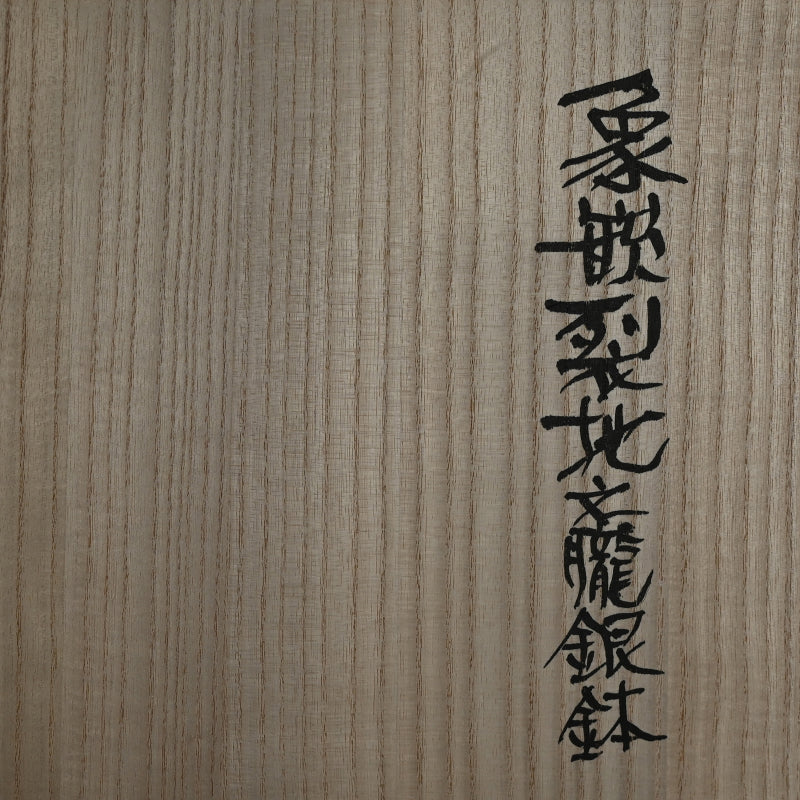 象嵌裂地文朧銀鉢